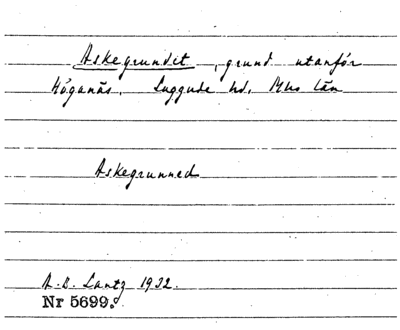 Askegrundet, grund utanför
Höganäs. Luggude hd. Mhs län
Askegrunned
A. B. Lantz 1932.
Nr 5699.